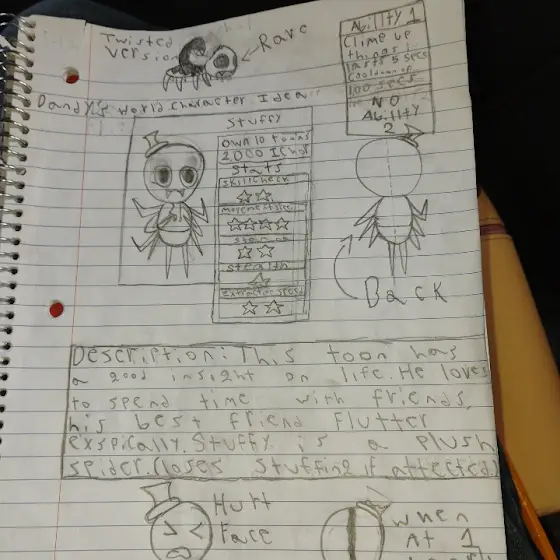 Twisted
Version
Rare
Dandy's world character Idea
Abillty 1
Clime up
things!
lasts 5 secs
Cooldown of
100 secs
NO
Abillty
2
Stuffy
own 10 toons
2,000 Ichor
Stats
Skillcheck
Stealth
Back
Description: This toon has
a good insight on life. He loves
to spend time with friends,
his best friend Flutter
exspically. Stuffy is a plush
spider. (loses stuffing if attected)
Hurt
Face
when
At 1